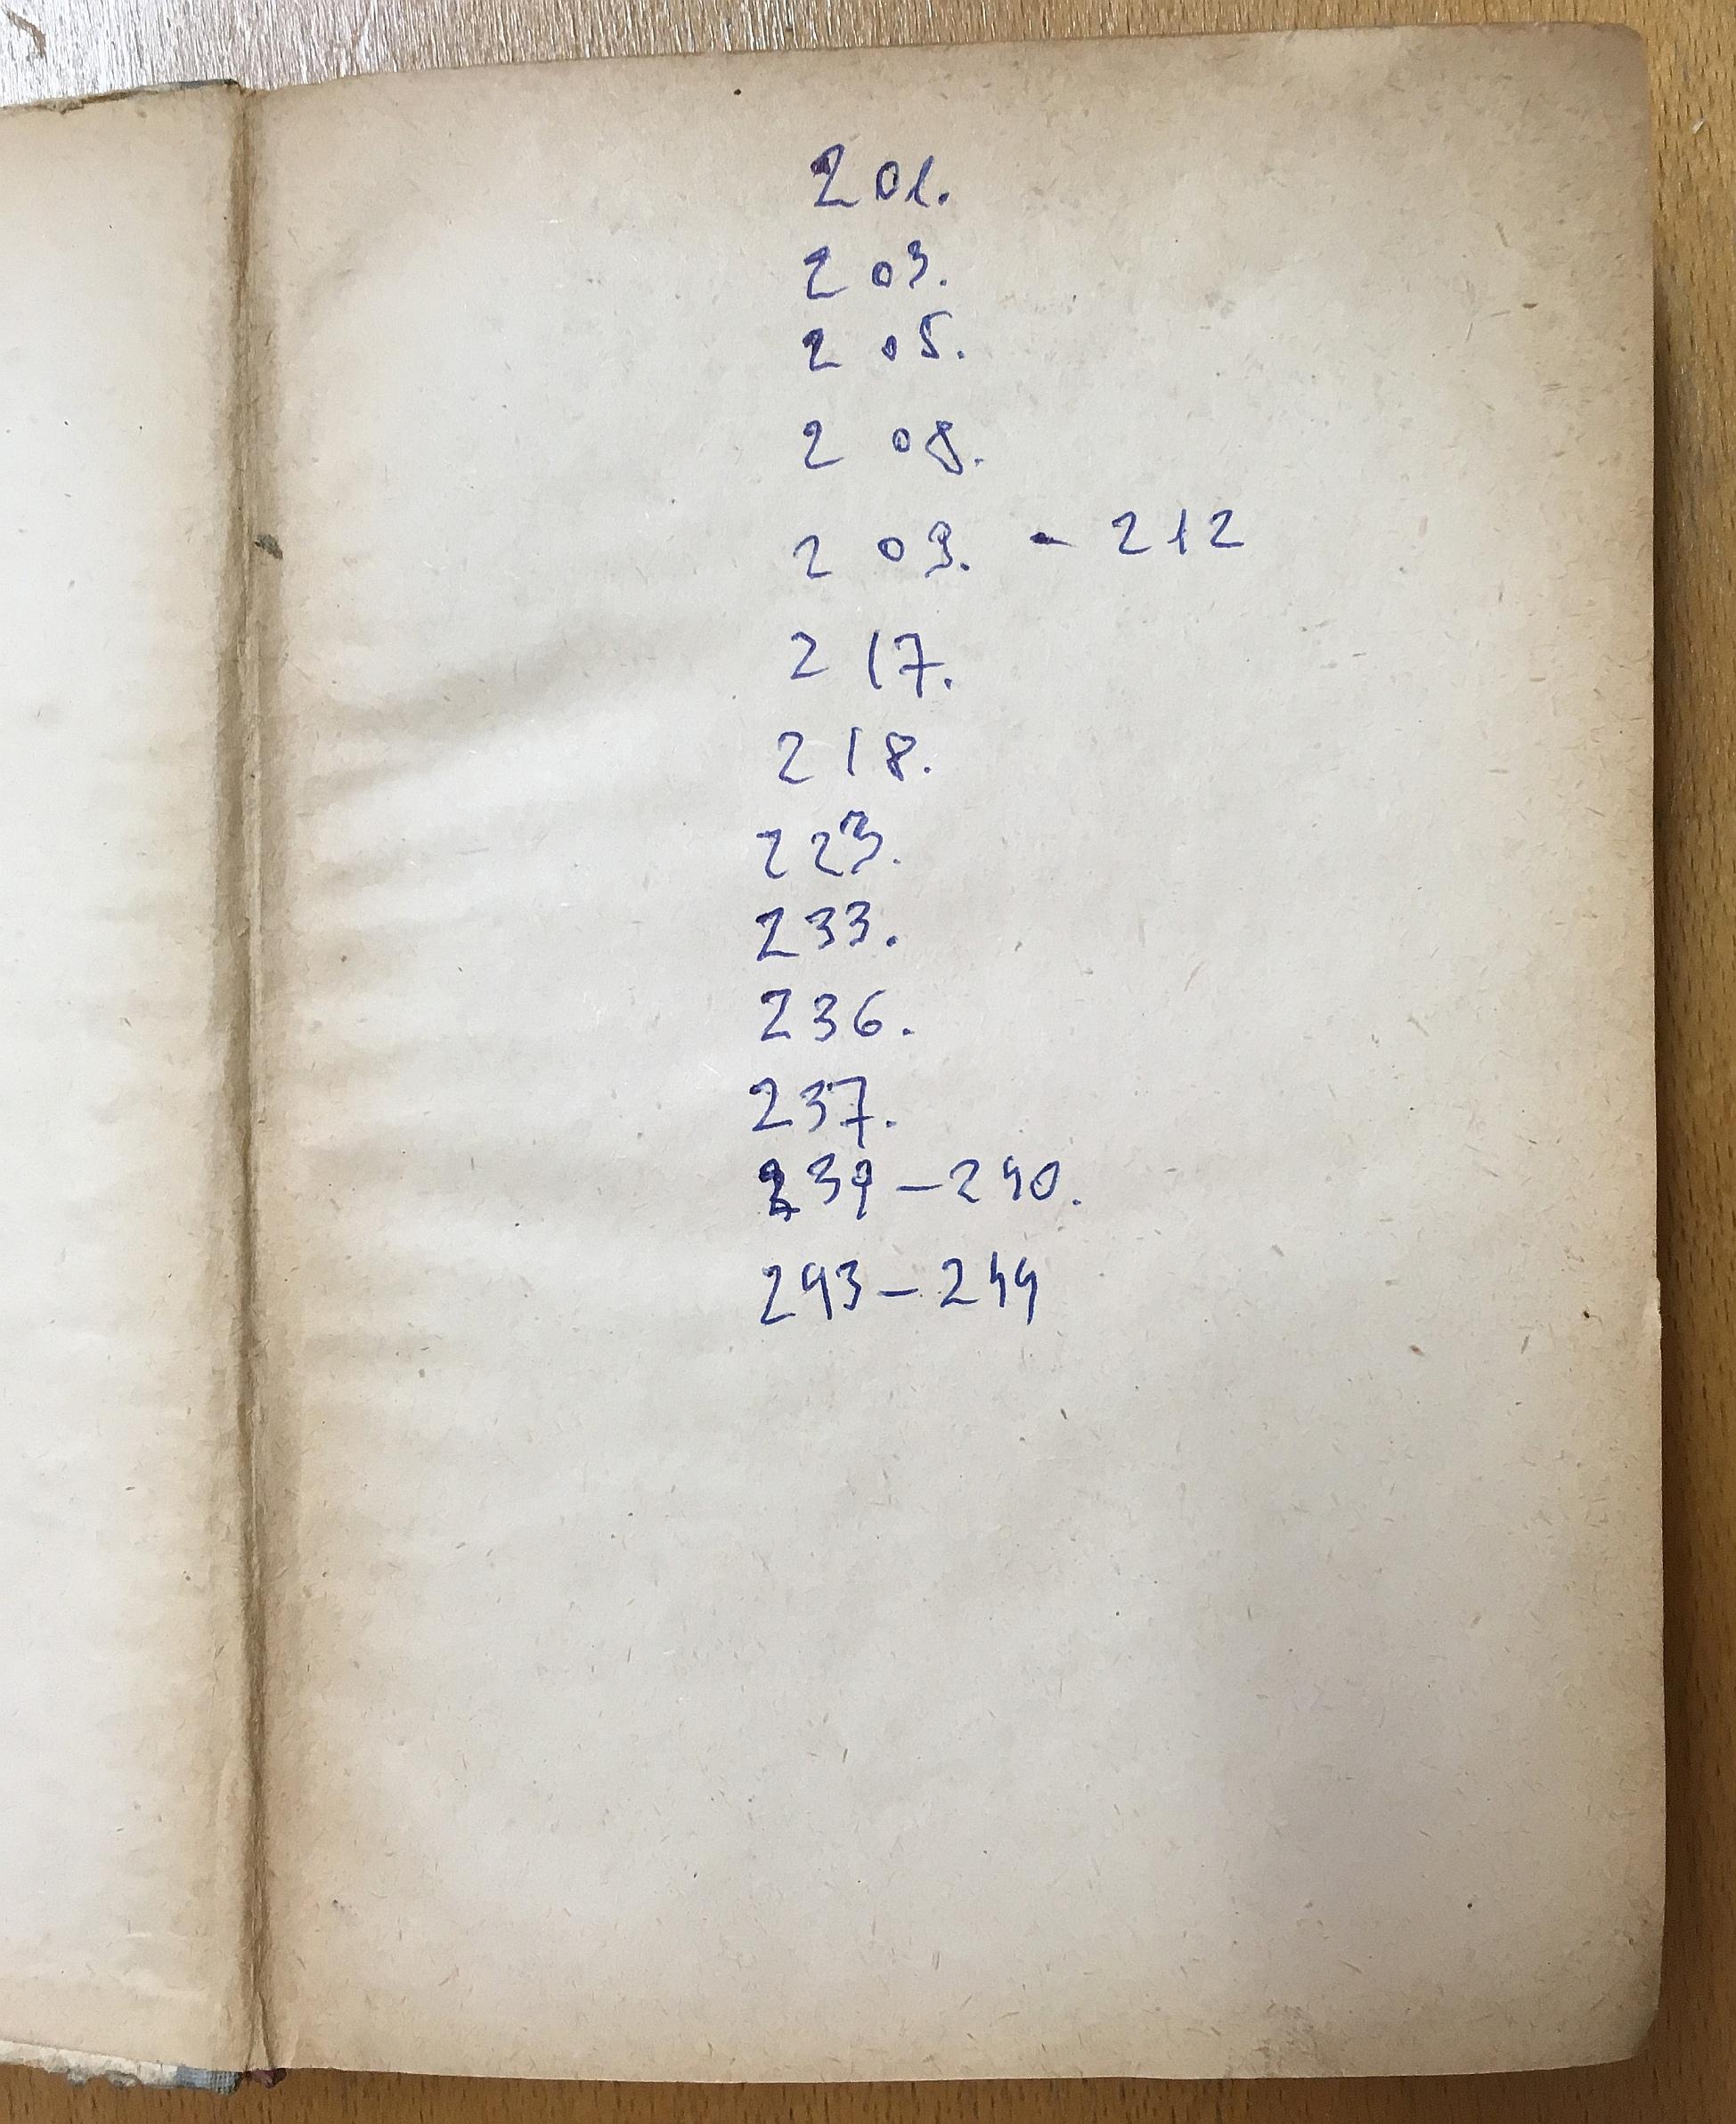 201.
203.
205.
208.
209. - 212
217.
218.
223.
233.
236.
237.
239 - 240.
243 - 244